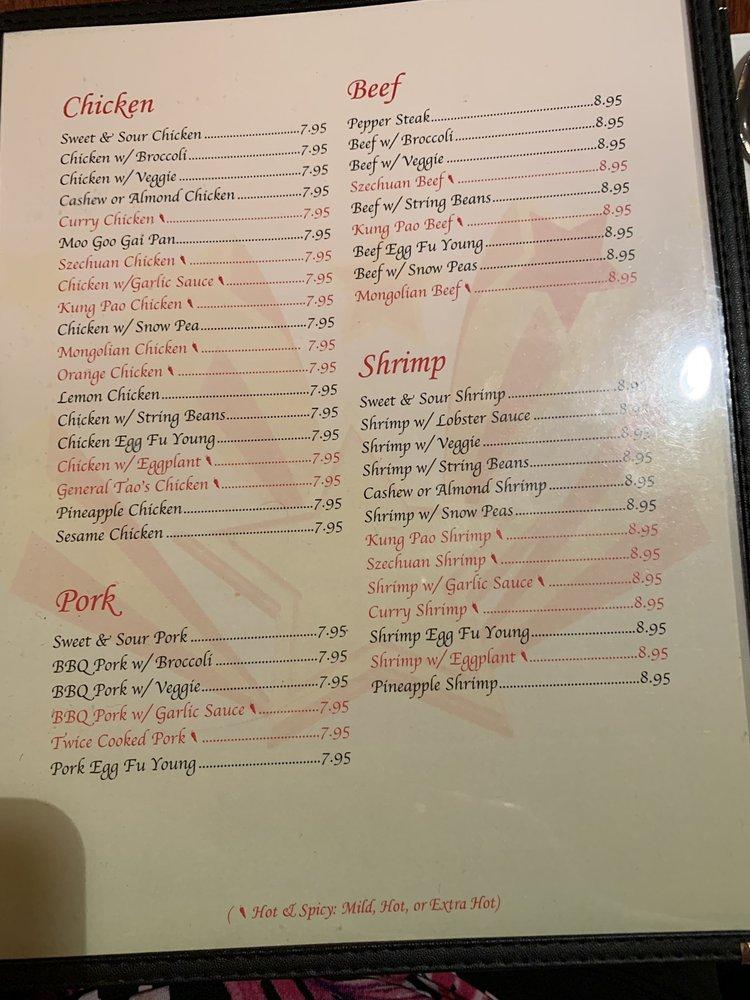 Chicken
Sweet & Sour Chicken 7.95
Chicken w/ Broccoli 7.95
Chicken w/ Veggie 7.95
Cashew or Almond Chicken 7.95
Curry Chicken 7.95
Moo Goo Gai Pan 7.95
Szechuan Chicken 7.95
Chicken w/Garlic Sauce 7.95
Kung Pao Chicken 7.95
Chicken w/ Snow Pea 7.95
Mongolian Chicken 7.95
Orange Chicken 7.95
Lemon Chicken 7.95
Chicken w/ String Beans 7.95
Chicken Egg Fu Young 7.95
Chicken w/ Eggplant 7.95
General Tao's Chicken 7.95
Pineapple Chicken 7.95
Sesame Chicken 7.95
Pork
Sweet & Sour Pork 7.95
BBQ Pork w/ Broccoli 7.95
BBQ Pork w/ Veggie 7.95
BBQ Pork w/ Garlic Sauce 7.95
Twice Cooked Pork 7.95
Pork Egg Fu Young 7.95
Beef
Pepper Steak 8.95
Beef w/ Broccoli 8.95
Beef w/ Veggie 8.95
Szechuan Beef 8.95
Beef w/ String Beans 8.95
Kung Pao Beef 8.95
Beef Egg Fu Young 8.95
Beef w/ Snow Peas 8.95
Mongolian Beef 8.95
Shrimp
Sweet & Sour Shrimp 8.95
Shrimp w/ Lobster Sauce 8.95
Shrimp w/ Veggie 8.95
Shrimp w/ String Beans 8.95
Cashew or Almond Shrimp 8.95
Shrimp w/ Snow Peas 8.95
Kung Pao Shrimp 8.95
Szechuan Shrimp 8.95
Shrimp w/ Garlic Sauce 8.95
Curry Shrimp 8.95
Shrimp Egg Fu Young 8.95
Shrimp w/ Eggplant 8.95
Pineapple Shrimp 8.95
( Hot & Spicy: Mild, Hot, or Extra Hot)